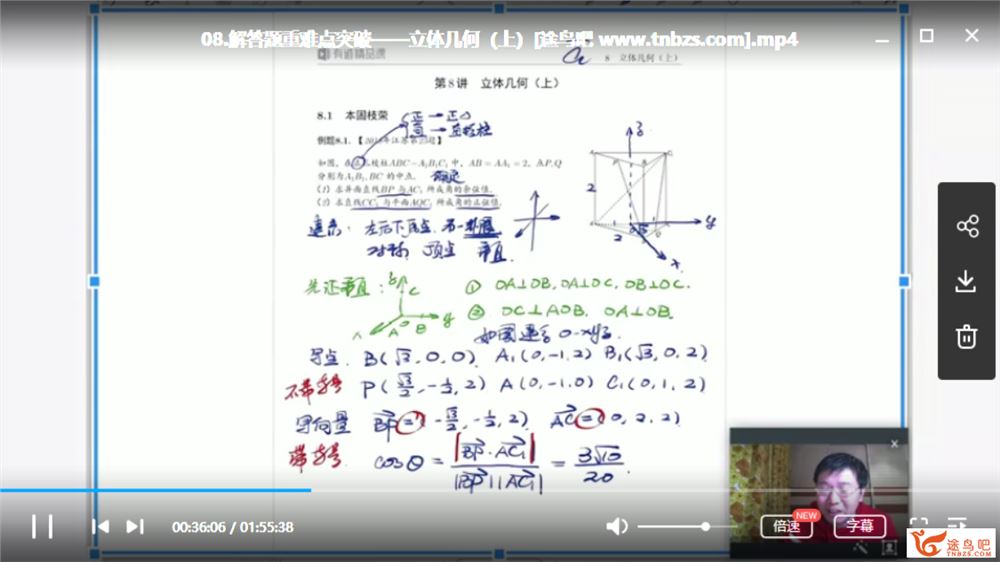 08.解答题重难点突破——立体几何（上）[途鸟吧 www.tnbzs.com].mp4
有道精品课
8 立体几何（上）
第 8 讲 立体几何（上）
8.1 本固枝荣
正 → 正△
直 → 直棱柱
如图，在正三棱柱ABC-A₁B₁C₁ 中，AB=AA₁=2，点P,Q
分别为A₁B₁, BC 的中点.
(1) 求异面直线BP 与AC₁ 所成角的余弦值.
(2) 求直线CC₁ 与平面AQC₁ 所成角的正弦值.
建系: 左后下顶点
对称 顶点 垂直
z
y
x
2
2
先证垂直:
z
C
y
x
A
O
B
① OA⊥OB, OA⊥OC, OB⊥OC.
② OC⊥AOB, OA⊥OB.
如图建系 O-xyz.
写点. B(√3,0,0) A₁(0,-1,2) B₁(√3,0,2)
不带等号 P(√3/2,-1/2,2) A(0,-1,0) C₁(0,1,2)
写向量 BP=(-√3/2,-1/2,2) AC₁=(0,2,2)
带等号 cosθ = |BP·AC₁| / |BP||AC₁| = 3√10/20
00:36:06 / 01:55:38
倍速
NEW
字幕
途鸟吧